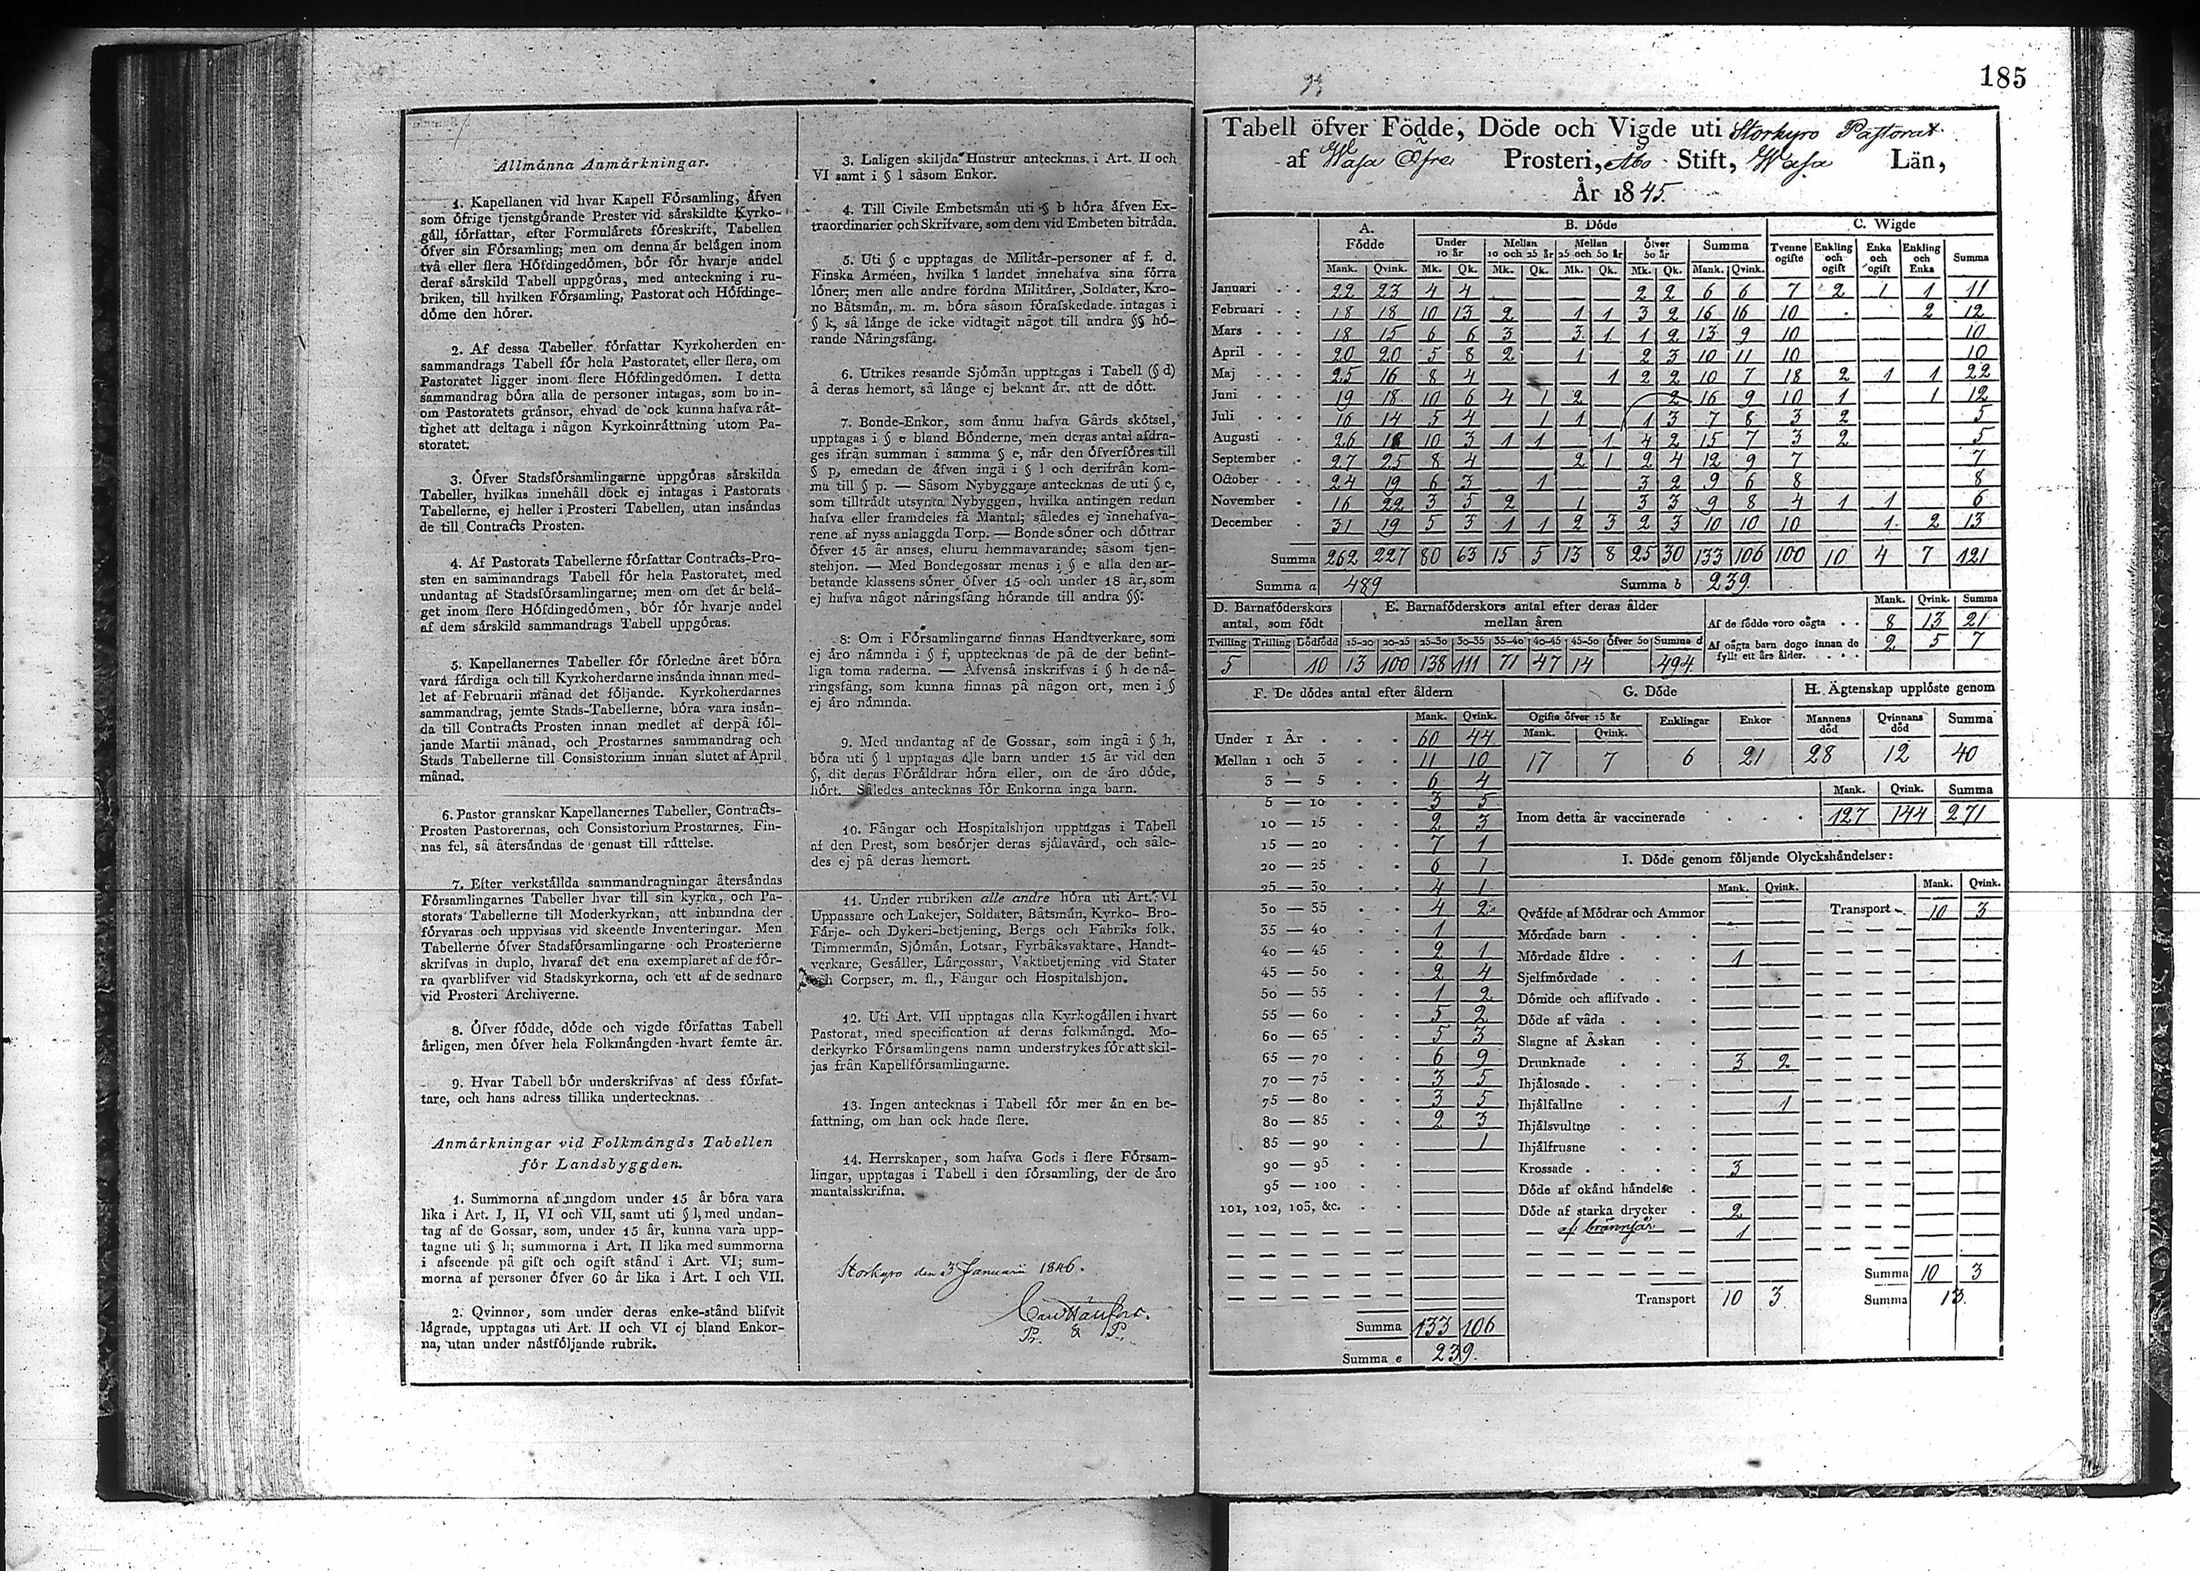 Allmånna Anmårkningar.
1. Kapellanen vid hvar Kapell Fórsamling, åfven
som ófrige tjenstgórande Prester vid sårskildte Kyrko-
gåll, fórfattar, efter Formulårets fóreskrift, Tabellen
ófver sin Fórsamling; men om denna år belågen inom
två eller flera Hófdingedómen, bór fór hvarje andel
deraf sårskild Tabell uppgóras, med anteckning i ru-
briken, till hvilken Fórsamling, Pastorat och Hófdinge-
dóme den hórer.
2. Af dessa Tabeller fórfattar Kyrkoherden en
sammandrags Tabell fór hela Pastoratet, eller flera, om
Pastoratet ligger inom flere Hófdingedómen. I detta
sammandrag bóra alla de personer intagas, som bo in-
om Pastoratets grånsor, ehvad de ock kunna hafva råt-
tighet att deltaga i någon Kyrkoinråttning utom Pa-
storatet.
3. Ófver Stadsfórsamlingarne uppgóras sårskilda
Tabeller, hvilkas innehåll dock ej intagas i Pastorats
Tabellerne, ej heller i Prosteri Tabellen, utan insåndas
de till Contracts Prosten.
4. Af Pastorats Tabellerne fórfattar Contracts-Pro-
sten en sammandrags Tabell fór hela Pastoratet, med
undantag af Stadsfórsamlingarne; men om det år belå-
get inom flere Hófdingedómen, bór fór hvarje andel
af dem sårskild sammandrags Tabell uppgóras.
5. Kapellanernes Tabeller fór fórledne året bóra
vara fårdiga och till Kyrkoherdarne insånda innan med-
let af Februarii månad det fóljande. Kyrkoherdarnes
sammandrag, jemte Stads-Tabellerne, bóra vara insån-
da till Contracts Prosten innan medlet af derpå fól-
jande Martii månad, och Prostarnes sammandrag och
Stads Tabellerne till Consistorium innan slutet af April
månad.
6. Pastor granskar Kapellanernes Tabeller, Contracts-
Prosten Pastorernas, och Consistorium Prostarnes. Fin-
nas fel, så återsåndas de genast till råttelse.
7. Efter verkstållda sammandragningar återsåndas
Fórsamlingarnes Tabeller hvar till sin kyrka, och Pa-
storats Tabellerne till Moderkyrkan, att inbundna der
fórvaras och uppvisas vid skeende Inventeringar. Men
Tabellerne ófver Stadsfórsamlingarne och Prosterierne
skrifvas in duplo, hvaraf det ena exemplaret af de fór-
ra qvarblifver vid Stadskyrkorna, och ett af de sednare
vid Prosteri Archiverne.
8. Ófver fódde, dóde och vigde fórfattas Tabell
årligen, men ófver hela Folkmångden hvart femte år.
9. Hvar Tabell bór underskrifvas af dess fórfat-
tare, och hans adress tillika undertecknas.
Anmårkningar vid Folkmångds Tabellen
fór Landsbyggden.
1. Summorna af ungdom under 15 år bóra vara
lika i Art. I, II, VI och VII, samt uti § l, med undan-
tag af de Gossar, som, under 15 år, kunna vara upp-
tagne uti § h; summorna i Art. II lika med summorna
i afseende på gift och ogift stånd i Art. VI; sum-
morna af personer ófver 60 år lika i Art. I och VII.
2. Qvinnor, som under deras enke-stånd blifvit
lågrade, upptagas uti Art. II och VI ej bland Enkor-
na, utan under nåstfóljande rubrik.
3. Laligen skiljda Hustrur antecknas i Art. II och
VI samt i § l såsom Enkor.
4. Till Civile Embetsmån uti § b hóra åfven Ex-
traordinarier och Skrifvare, som dem vid Embeten bitråda.
5. Uti § c upptagas de Militår-personer af f. d.
Finska Arméen, hvilka i landet innehafva sina fórra
lóner; men alle andre fordna Militårer, Soldater, Kro-
no Båtsmån, m. m. bóra såsom fórafskedade intagas i
§ k, så långe de icke vidtagit något till andra §§ hó-
rande Nåringsfång.
6. Utrikes resande Sjómån upptagas i Tabell (§ d)
å deras hemort, så långe ej bekant år, att de dótt.
7. Bonde-Enkor, som ånnu hafva Gårds skótsel,
upptagas i § e bland Bónderne, men deras antal afdra-
ges ifrån summan i samma § e, når den ófverfóres till
§ p, emedan de åfven ingå i § l och derifrån kom-
ma till § p. — Såsom Nybyggare antecknas de uti § e,
som tilltrådt utsynta Nybyggen, hvilka antingen redan
hafva eller framdeles få Mantal; således ej innehafva-
rene af nyss anlaggda Torp. — Bonde sóner och dóttrar
ófver 15 år anses, ehuru hemmavarande, såsom tjen-
stehjon. — Med Bondegossar menas i § e alla den ar-
betande klassens sóner ófver 15 och under 18 år, som
ej hafva något nåringsfång hórande till andra §§.
8. Om i Fórsamlingarne finnas Handtverkare, som
ej åro nåmnda i § f, upptecknas de på de der befint-
liga toma raderna. — Åfvenså inskrifvas i § h de nå-
ringsfång, som kunna finnas på någon ort, men i §
ej åro nåmnda.
9. Med undantag af de Gossar, som ingå i § h,
bóra uti § l upptagas alle barn under 15 år vid den
§, dit deras Fóråldrar hóra eller, om de åro dóde,
hórt. Således antecknas fór Enkorna inga barn.
10. Fångar och Hospitalshjon upptagas i Tabell
af den Prest, som besórjer deras sjålavård, och såle-
des ej på deras hemort.
11. Under rubriken alle andre hóra uti Art. VI
Uppassare och Lakejer, Soldater, Båtsmån, Kyrko- Bro-
Fårje- och Dykeri-betjening, Bergs och Fabriks folk,
Timmermån, Sjómån, Lotsar, Fyrbåksvaktare, Handt-
verkare, Gesåller, Lårgossar, Vaktbetjening vid Stater
och Corpser, m. fl., Fångar och Hospitalshjon.
12. Uti Art. VII upptagas alla Kyrkogållen i hvart
Pastorat, med specification af deras folkmångd. Mo-
derkyrko Fórsamlingens namn understrykes fór att skil-
jas från Kapellfórsamlingarne.
13. Ingen antecknas i Tabell fór mer ån en be-
fattning, om han ock hade flere.
14. Herrskaper, som hafva Gods i flere Fórsam-
lingar, upptagas i Tabell i den fórsamling, der de åro
mantalsskrifna.
Storkyro den 3 Januarii 1846.
185
Tabell öfver Födde, Döde och Vigde uti Storkyro Pastorat
af Wasa Öfre Prosteri, Åbo Stift, Wasa Län,
År 1845.
A. Födde B. Dóde C. Wigde
Under 10 år Mellan 10 och 25 år Mellan 25 och 50 år Ófver 50 år Summa Tvenne ogifte Enkling och ogift Enka och ogift Enkling och Enka Summa
Mank. Qvink. Mk. Qk. Mk. Qk. Mk. Qk. Mk. Qk. Mank. Qvink.
Januari 22 23 4 4 2 2 6 6 7 2 1 1 11
Februari 18 18 10 13 2 1 1 3 2 16 16 10 2 12
Mars 18 15 6 6 3 3 1 1 2 13 9 10 10
April 20 20 5 8 2 1 2 3 10 11 10 10
Maj 25 16 8 4 1 2 2 10 7 18 2 1 1 22
Juni 19 18 10 6 4 1 2 2 16 9 10 1 1 12
Juli 16 14 5 4 1 1 1 3 7 8 3 2 5
Augusti 26 18 10 3 1 1 1 4 2 15 7 3 2 5
September 27 25 8 4 2 1 2 4 12 9 7 7
October 24 19 6 3 1 3 2 9 6 8 8
November 16 22 3 5 2 1 3 3 9 8 4 1 1 6
December 31 19 5 3 1 1 2 3 2 3 10 10 10 1 2 13
Summa 262 227 80 63 15 5 13 8 25 30 133 106 100 10 4 7 121
Summa a 489 Summa b 239.
D. Barnafóderskors antal, som fódt
Tvilling Trilling Dódfódd
5 10
E. Barnafóderskors antal efter deras ålder mellan åren
15-20 20-25 25-30 30-35 35-40 40-45 45-50 ófver 50 Summa d
13 100 138 111 71 47 14 494
Mank. Qvink. Summa
Af de fódde voro oågta 8 13 21
Af oågta barn dogo innan de fyllt ett års ålder. 2 5 7
F. De dódes antal efter åldern
Mank. Qvink.
Under 1 År 60 44
Mellan 1 och 3 11 10
3 — 5 6 4
5 — 10 3 5
10 — 15 2 3
15 — 20 7 1
20 — 25 6 1
25 — 30 4 1
30 — 35 4 2
35 — 40 1
40 — 45 2 1
45 — 50 2 4
50 — 55 1 2
55 — 60 5 2
60 — 65 5 3
65 — 70 6 9
70 — 75 3 5
75 — 80 3 5
80 — 85 2 3
85 — 90 1
90 — 95
95 — 100
101, 102, 103, &c.
Summa 133 106
Summa e 239.
G. Dóde
Ogifte ófver 15 år Enklingar Enkor
Mank. Qvink.
17 7 6 21
H. Ågtenskap uplóste genom
Mannens dód Qvinnans dód Summa
28 12 40
Mank. Qvink. Summa
Inom detta år vaccinerade 127 144 271
I. Dóde genom fóljande Olyckshåndelser:
Mank. Qvink. Mank. Qvink.
Qvåfde af Módrar och Ammor Transport 10 3
Mórdade barn
Mórdade åldre 1
Sjelfmórdade
Dómde och aflifvade
Dóde af våda
Slagne af Åskan
Drunknade 3 2
Ihjålosade
Ihjålfallne 1
Ihjålsvultne
Ihjålfrusne
Krossade 3
Dóde af okånd håndelse
Dóde af starka drycker 2
af brännsår 1
Summa 10 3
Transport 10 3 Summa 13.